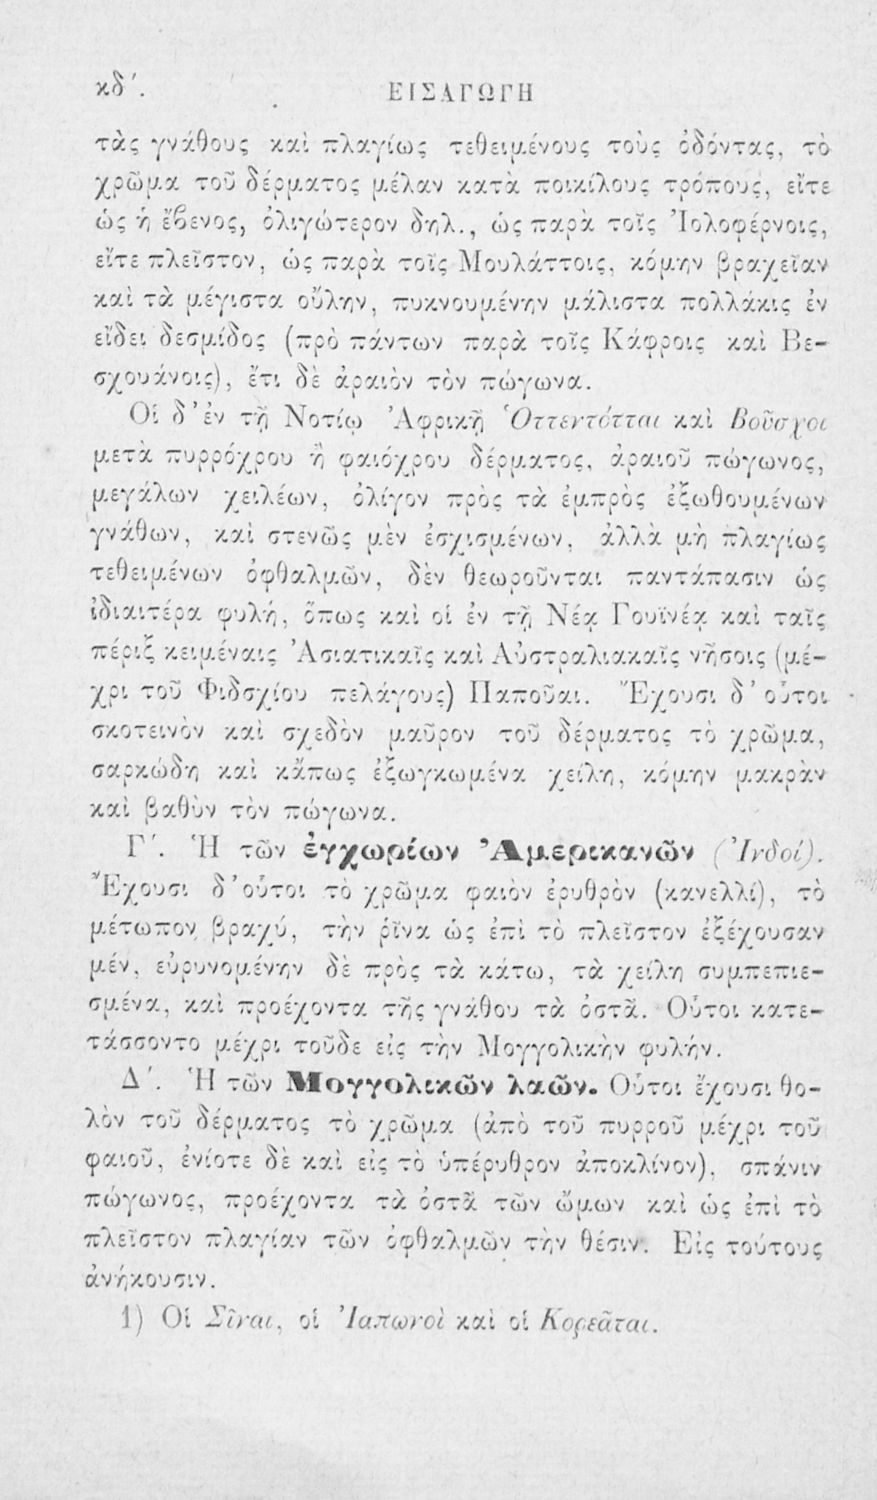 κδ΄.
ΕΙΣΑΓΩΓΗ
τὰς γνάθους καὶ πλαγίως τεθειμένους τοὺς ὀδόντας, τὸ
χρῶμα τοῦ δέρματος μέλαν κατὰ ποικίλους τρόπους, εἴτε
ὡς ἡ ἔβενος, ὀλιγώτερον δηλ., ὡς παρὰ τοῖς Ἰολοφέρνοις,
εἴτε πλεῖστον, ὡς παρὰ τοῖς Μουλάττοις, κόμην βραχεῖαν
καὶ τὰ μέγιστα οὔλην, πυκνουμένην μάλιστα πολλάκις ἐν
εἴδει δεσμίδος (πρὸ πάντων παρὰ τοῖς Κάφροις καὶ Βε-
σχουάνοις), ἔτι δὲ ἀραιὸν τὸν πώγωνα.
Οἱ δ᾽ ἐν τῇ Νοτίῳ Ἀφρικῇ Ὁττεντόττοι καὶ Βοῦσχοι
μετὰ πυρρόχρου ἢ φαιόχρου δέρματος, ἀραιοῦ πώγωνος,
μεγάλων χειλέων, ὀλίγον πρὸς τὰ ἐμπρὸς ἐξωθουμένων
γνάθων, καὶ στενῶς μὲν ἐσχισμένων, ἀλλὰ μὴ πλαγίως
τεθειμένων ὀφθαλμῶν, δὲν θεωροῦνται παντάπασιν ὡς
ἰδιαιτέρα φυλή, ὅπως καὶ οἱ ἐν τῇ Νέᾳ Γουϊνέᾳ καὶ ταῖς
πέριξ κειμέναις Ἀσιατικαῖς καὶ Αὐστραλιακαῖς νήσοις (μέ-
χρι τοῦ Φιδσχίου πελάγους) Παποῦαι. Ἔχουσι δ᾽ οὗτοι
σκοτεινὸν καὶ σχεδὸν μαῦρον τοῦ δέρματος τὸ χρῶμα,
σαρκώδη καὶ κἄπως ἐξωγκωμένα χείλη, κόμην μακρὰν
καὶ βαθὺν τὸν πώγωνα.
Γ΄. Ἡ τῶν ἐγχωρίων Ἀμερικανῶν (Ἰνδοί).
Ἔχουσι δ᾽ οὗτοι τὸ χρῶμα φαιὸν ἐρυθρὸν (κανελλί), τὸ
μέτωπον βραχύ, τὴν ῥῖνα ὡς ἐπὶ τὸ πλεῖστον ἐξέχουσαν
μέν, εὐρυνομένην δὲ πρὸς τὰ κάτω, τὰ χείλη συμπεπιε-
σμένα, καὶ προέχοντα τῆς γνάθου τὰ ὀστᾶ. Οὗτοι κατε-
τάσσοντο μέχρι τοῦδε εἰς τὴν Μογγολικὴν φυλήν.
Δ΄. Ἡ τῶν Μογγολικῶν λαῶν. Οὗτοι ἔχουσι θο-
λὸν τοῦ δέρματος τὸ χρῶμα (ἀπὸ τοῦ πυρροῦ μέχρι τοῦ
φαιοῦ, ἐνίοτε δὲ καὶ εἰς τὸ ὑπέρυθρον ἀποκλίνον), σπάνιν
πώγωνος, προέχοντα τὰ ὀστᾶ τῶν ὤμων καὶ ὡς ἐπὶ τὸ
πλεῖστον πλαγίαν τῶν ὀφθαλμῶν τὴν θέσιν. Εἰς τούτους
ἀνήκουσιν.
1) Οἱ Σῖναι, οἱ Ἰαπωνοὶ καὶ οἱ Κορεᾶται.